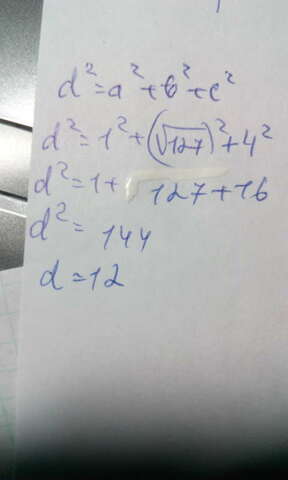 d²=a²+b²+c²
d²=1²+(√127)²+4²
d²=1+127+16
d²=144
d=12